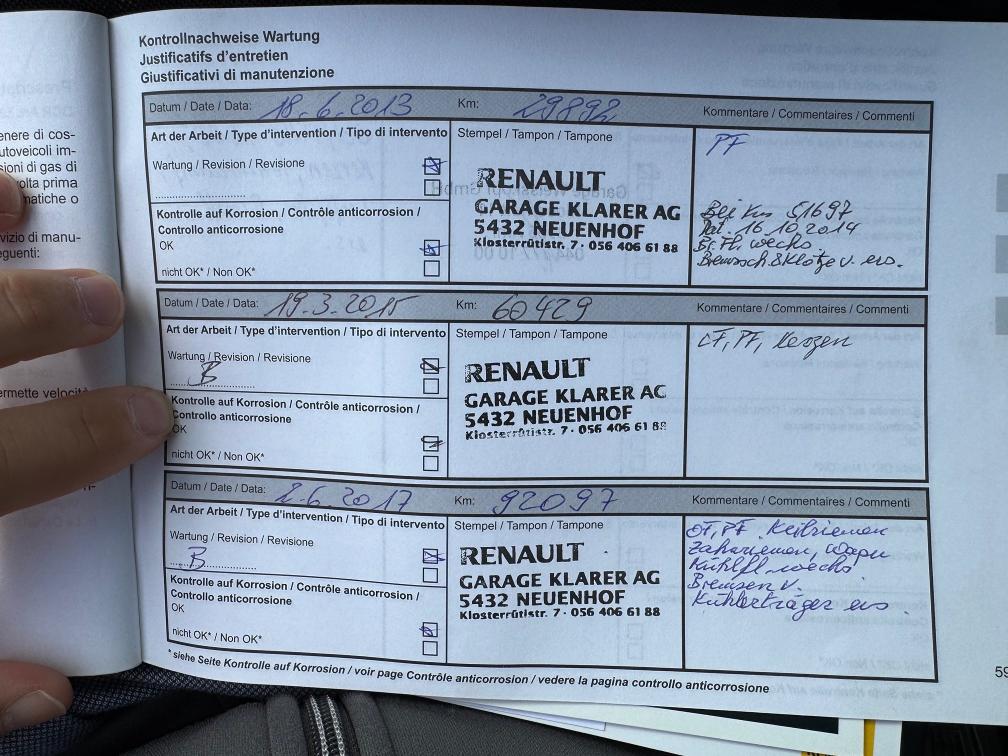 Kontrollnachweise Wartung
Justificatifs d'entretien
Giustificativi di manutenzione
Datum / Date / Data: 18.6.2013 Km: 29892 Kommentare / Commentaires / Commenti
Art der Arbeit / Type d'intervention / Tipo di intervento Stempel / Tampon / Tampone PF
Wartung / Revision / Revisione
RENAULT
GARAGE KLARER AG
5432 NEUENHOF
Klosterrütistr. 7 · 056 406 61 88
Kontrolle auf Korrosion / Contrôle anticorrosion /
Controllo anticorrosione
OK
nicht OK* / Non OK*
Bei Km 51697
Dat. 16.10.2014
Br. Fl. wechs.
Bremssch & Klötze v. ers.
Datum / Date / Data: 19.3.2015 Km: 60429 Kommentare / Commentaires / Commenti
Art der Arbeit / Type d'intervention / Tipo di intervento Stempel / Tampon / Tampone
Wartung / Revision / Revisione
B
RENAULT
GARAGE KLARER AG
5432 NEUENHOF
Klosterrütistr. 7 · 056 406 61 88
PF, Kerzen
Kontrolle auf Korrosion / Contrôle anticorrosion /
Controllo anticorrosione
OK
nicht OK* / Non OK*
Datum / Date / Data: 2.6.2017 Km: 92097 Kommentare / Commentaires / Commenti
Art der Arbeit / Type d'intervention / Tipo di intervento Stempel / Tampon / Tampone
Wartung / Revision / Revisione
B
RENAULT
GARAGE KLARER AG
5432 NEUENHOF
Klosterrütistr. 7 · 056 406 61 88
PF, Keilriemen
Zahnriemen, Wapu
Kühlfl. wechs
Bremsen v.
Kühlerträger ers.
Kontrolle auf Korrosion / Contrôle anticorrosion /
Controllo anticorrosione
OK
nicht OK* / Non OK*
* siehe Seite Kontrolle auf Korrosion / voir page Contrôle anticorrosion / vedere la pagina controllo anticorrosione
59